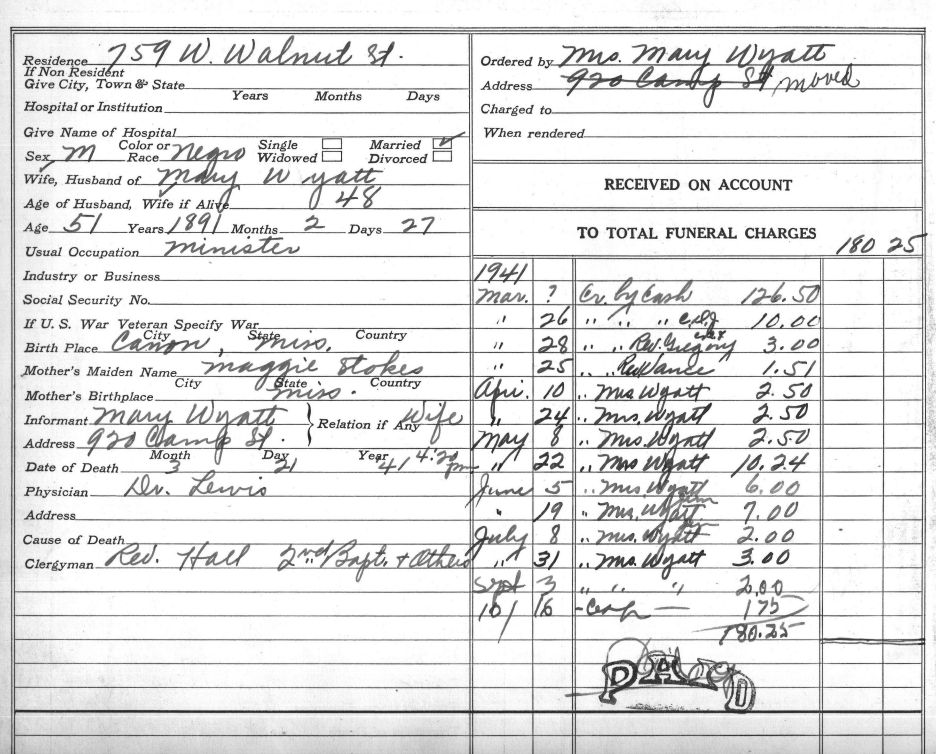 Residence 759 W. Walnut St.
If Non Resident
Give City, Town & State
Years Months Days
Hospital or Institution
Give Name of Hospital
Color or Single Married ✓
Sex M Race Negro Widowed Divorced
Wife, Husband of Mary Wyatt
Age of Husband, Wife if Alive 48
Age 51 Years 1891 Months 2 Days 27
Usual Occupation minister
Industry or Business
Social Security No.
If U. S. War Veteran Specify War
City State Country
Birth Place Canon, Miss.
Mother's Maiden Name Maggie Stokes
City State Country
Mother's Birthplace Miss.
Informant Mary Wyatt Relation if Any Wife
Address 920 Camp St.
Month Day Year
Date of Death 3 21 41 4:20 pm
Physician Dr. Lewis
Address
Cause of Death
Clergyman Rev. Hall 2nd Bapt. & Others
Ordered by Mrs. Mary Wyatt
Address 920 Camp St moved
Charged to
When rendered
RECEIVED ON ACCOUNT
TO TOTAL FUNERAL CHARGES 180 25
1941
Mar. ? Cr. by Cash 126.50
" 26 " " " 10.00
" 28 " " Rev. Gregory 3.00
" 25 " " 1.51
Apr. 10 " Mrs Wyatt 2.50
" 24 " Mrs. Wyatt 2.50
May 8 " Mrs. Wyatt 2.50
" 22 " Mrs Wyatt 10.24
June 5 " Mrs Wyatt 6.00
" 19 " Mrs. Wyatt 7.00
July 8 " Mrs. Wyatt 2.00
" 31 " Mrs. Wyatt 3.00
Sept 3 " " " 2.00
10/ 16 - — 175
180.25
PAID